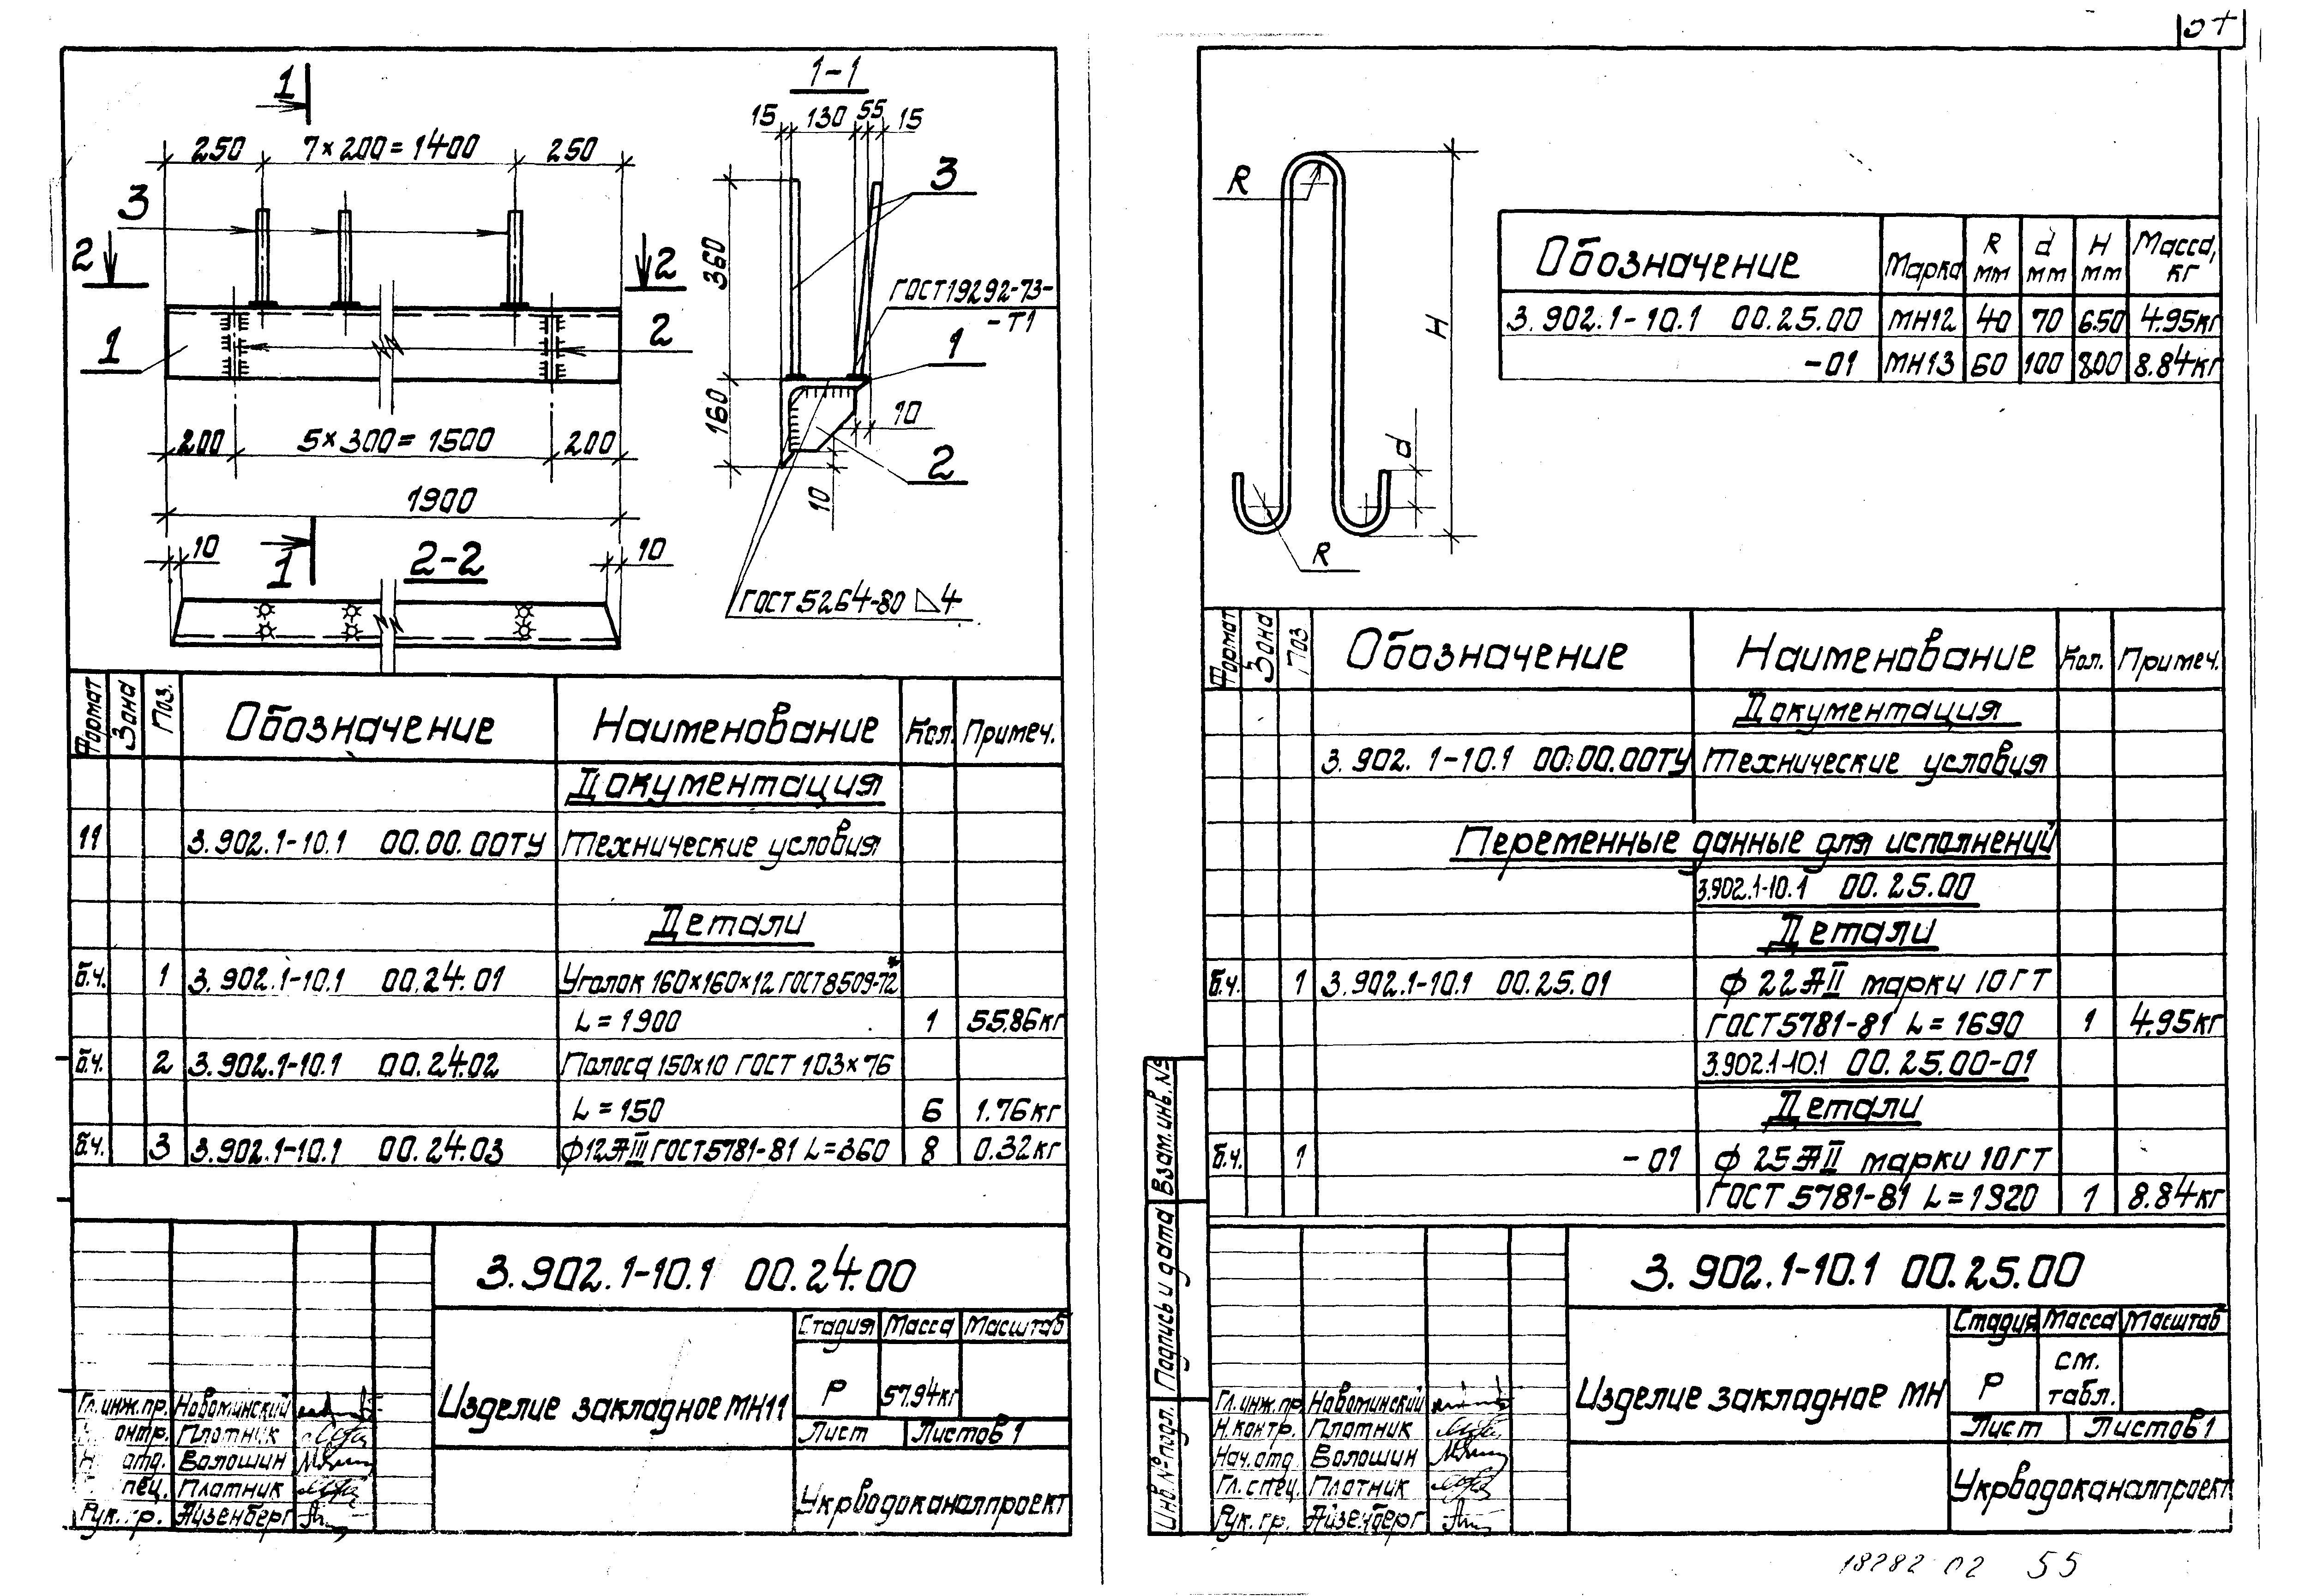 1
1-1
15 130 55 15
250 7×200=1400 250
3
3
2
2
360
ГОСТ 19292-73-
-Т1
1
1
2
160
10
200 5×300=1500 200
2
10
1900
10
1
2-2
10
ГОСТ 5264-80 ⊿4
Формат Зона Поз. Обозначение Наименование Кол. Примеч.
Документация
11 3.902.1-10.1 00.00.00ТУ Технические условия
Детали
б.ч. 1 3.902.1-10.1 00.24.01 Уголок 160×160×12 ГОСТ 8509-72*
L=1900 1 55.86кг
б.ч. 2 3.902.1-10.1 00.24.02 Полоса 150×10 ГОСТ 103×76
L=150 6 1.76кг
б.ч. 3 3.902.1-10.1 00.24.03 ф12АIII ГОСТ 5781-81 L=360 8 0.32кг
3.902.1-10.1 00.24.00
Стадия Масса Масштаб
Изделие закладное МН11
Р 57.94кг
Лист Листов 1
Укрводоканалпроект
Гл.инж.пр. Новоминский
онтр. Плотник
Н отд. Волошин
пец. Плотник
Рук. гр. Айзенберг
R
H
d
R
Обозначение Марка R мм d мм H мм Масса, кг
3.902.1-10.1 00.25.00 МН12 40 70 650 4.95кг
-01 МН13 60 100 800 8.84кг
Формат Зона Поз Обозначение Наименование Кол. Примеч.
Документация
3.902.1-10.1 00.00.00ТУ Технические условия
Переменные данные для исполнений
3.902.1-10.1 00.25.00
Детали
б.ч. 1 3.902.1-10.1 00.25.01 ф 22АII марки 10ГТ
ГОСТ 5781-81 L=1690 1 4.95кг
3.902.1-10.1 00.25.00-01
Детали
б.ч. 1 -01 ф 25АII марки 10ГТ
ГОСТ 5781-81 L=1920 1 8.84кг
Взам.инв.№
Подпись и дата
Инв.№ подл.
3.902.1-10.1 00.25.00
Стадия Масса Масштаб
Изделие закладное МН
Р см. табл.
Лист Листов 1
Укрводоканалпроект
Гл.инж.пр Новоминский
Н.контр. Плотник
Нач.отд Волошин
Гл.спец. Плотник
Рук.гр. Айзенберг
18282 02 55